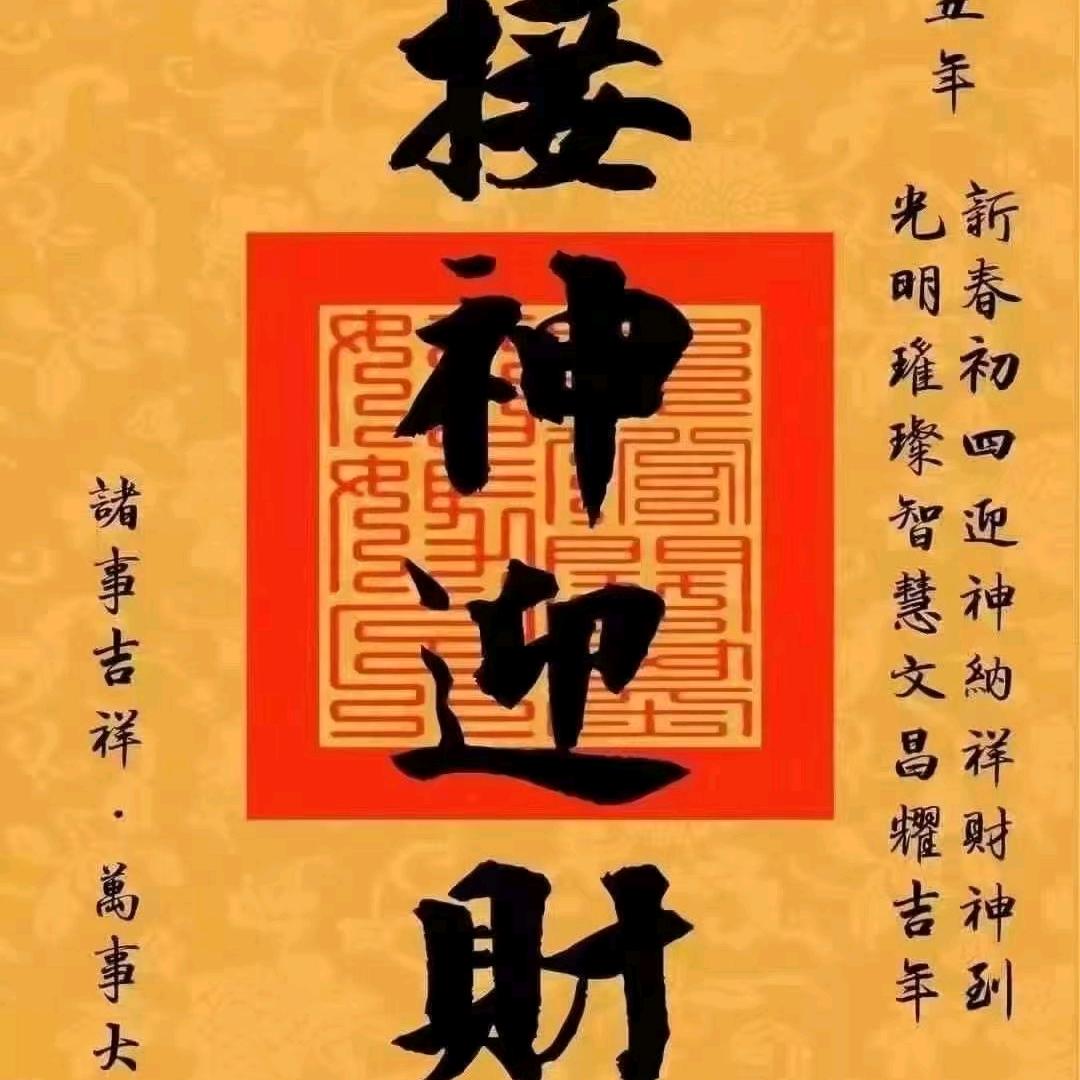 丑年
新春初四迎神納祥財神到
光明璀璨智慧文昌耀吉年
接神迎財
諸事吉祥・萬事大